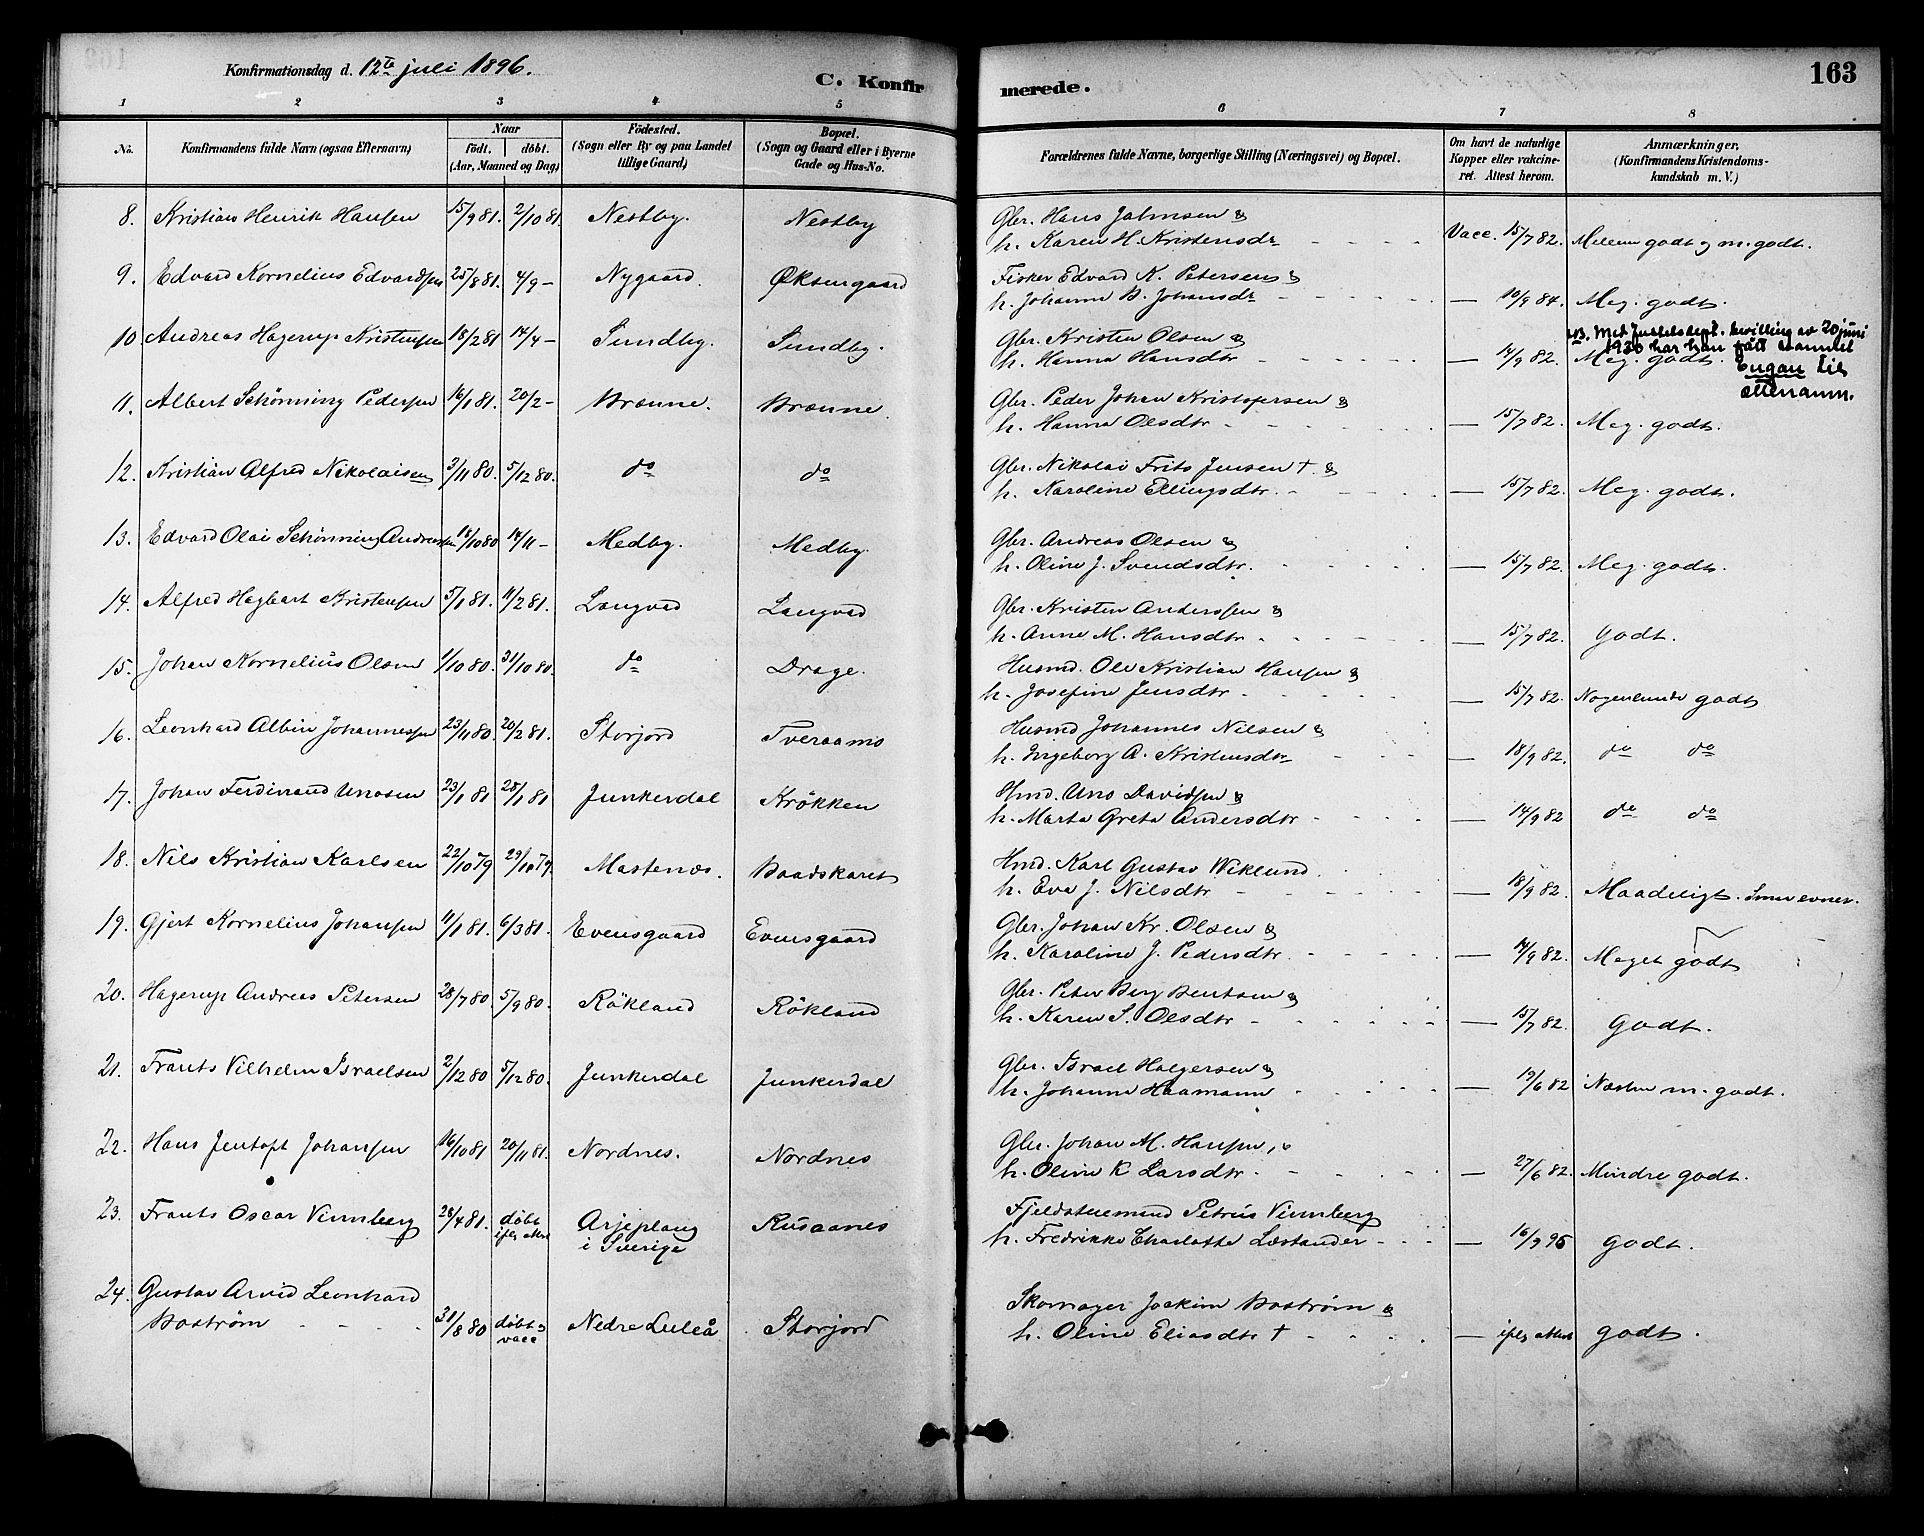 Konfirmationsdag d. 12te juli 1896.
C. Konfirmerede.
163
1 2 3 4 5 6 7 8
No. Konfirmandens fulde Navn (ogsaa Efternavn) Naar født. døbt. (Aar, Maaned og Dag) Fødested. (Sogn eller By og paa Landet tillige Gaard) Bopæl. (Sogn og Gaard eller i Byerne Gade og Hus-No. Forældrenes fulde Navne, borgerlige Stilling (Næringsvei) og Bopæl. Om havt de naturlige Kopper eller vakcineret. Attest herom. Anmærkninger. (Konfirmandens Kristendomskundskab m. V.)
8. Kristian Henrik Hansen 15/9 81. 2/10 81. Nestby. Nestby Gbr. Hans Jahnsen &
h. Karen H. Kristensdr Vacc. 15/7 82. Mellem godt og m. godt.
9. Edvard Kornelius Edvardsen 25/8 81. 4/9 – Nygaard. Øksengaard Fisker Edvard K. Petersen &
h. Johanne B. Johansdr — 10/9 84. Meg. godt.
10 Andreas Hagerup Kristensen 18/2 81 14/4 – Sundby. Sundby. Gbr. Kristen Olsen &
h. Hanna Hansdtr — 14/9 82. Meg. godt.
NB. Met Justitsdept. bevilling av 20 juni
1930 har han fått
Engan til
ettenamn.
11. Albert Schønning Pedersen 16/1 81. 20/2 – Brænne. Brænne. Gbr. Peder Johan Kristofersen &
h. Hanna Olsdtr — 15/7 82. Meg. godt.
12. Kristian Alfred Nikolaisen 3/11 80. 5/12 80. do do Gbr. Nikolai Frits Jensen † &
h. Karoline Ellingsdtr. — 15/7 82. Meg. godt.
13. Edvard Olai Schønning Andreassen 18/10 80 14/11 – Medby. Medby. Gbr. Andreas Olsen &
h. Oline J. Svendsdtr. — 15/7 82. Meg. godt.
14. Alfred Hegbart Kristensen 5/1 81. 11/2 81. Langvad Langvad Gbr. Kristen Anderssen &
h. Anne M. Hansdtr — 15/7 82. Godt.
15. Johan Kornelius Olsen 1/10 80. 31/10 80. do Drage. Husmd. Ole Kristian Hansen &
h. Josefine Jensdtr — 15/7 82. Nogenlunde godt
16. Leonhard Albin Johannessen 23/11 80. 20/2 81. Storjord Tveraamo Husmd Johannes Nilsen &
h. Ingeborg A. Kristensdtr — 18/9 82. do do
17. Johan Ferdinand Unosen 23/1 81 28/1 81 Junkerdal Krökken Hmd. Uno Davidsen &
h. Marta Greta Andersdtr — 14/9 82 do do
18. Nils Kristian Karlsen 22/10 79 29/10 79. Mastenæs. Baadskaret Hmd. Karl Gustav Wiklund
h. Eva J. Nilsdtr — 18/9 82. Maadeligt. Smaa evner.
19. Gjert Kornelius Johansen 11/1 81. 6/3 81. Evensgaard Evensgaard Gbr. Johan Kr. Olsen &
h. Karoline J. Pedersdtr. — 14/9 82. Meget godt
20. Hagerup Andreas Petersen 28/7 80. 5/9 80. Rökland Rökland Gbr. Peter Berg Bentsen &
h. Karen S. Olsdtr — 15/7 82. Godt.
21. Frants Vilhelm Israelsen 2/12 80 5/12 80. Junkerdal Junkerdal Gbr. Israel Holgersen &
h. Johanne Haamann — 19/6 82 Næsten m. godt.
22. Hans Jentoft Johansen 16/10 81 20/11 81. Nordnes. Nordnes Gbr. Johan M. Hansen, &
h. Oline K Larsdtr. — 27/6 82. Mindre godt.
23. Frants Oscar Vennberg 28/4 81. døbt ifly attest Arjeplaug i Sverige Rusaanes Fjeldstuemand Petrus Vennberg
h. Fredrikke Charlotte Læstander — 16/9 95 godt.
24. Gustav Arvid Leonhard
Boström 31/8 80 døbt & vacc Nedre Luleå Storjord Skomager Joakim Boström &
h. Oline Eliasdtr † — iflg attest godt.